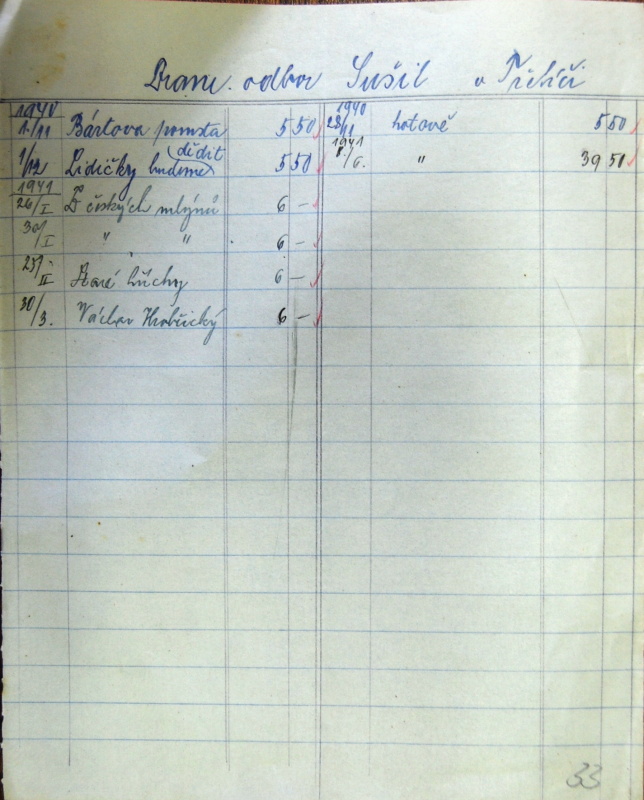 Dram. odbor Sušil v Třebíči
1940 1940
1./11 Bártova pomsta 5 50 28/11 hotově 5 50
dědit 1941
1/12 Lidičky budeme 5 50 8./6. " 39 50
1941
26/I Z českých mlýnů 6 —
30/I " " 6 —
23/II Staré hříchy 6 —
30/3. Václav Hrobčický 6 —
33